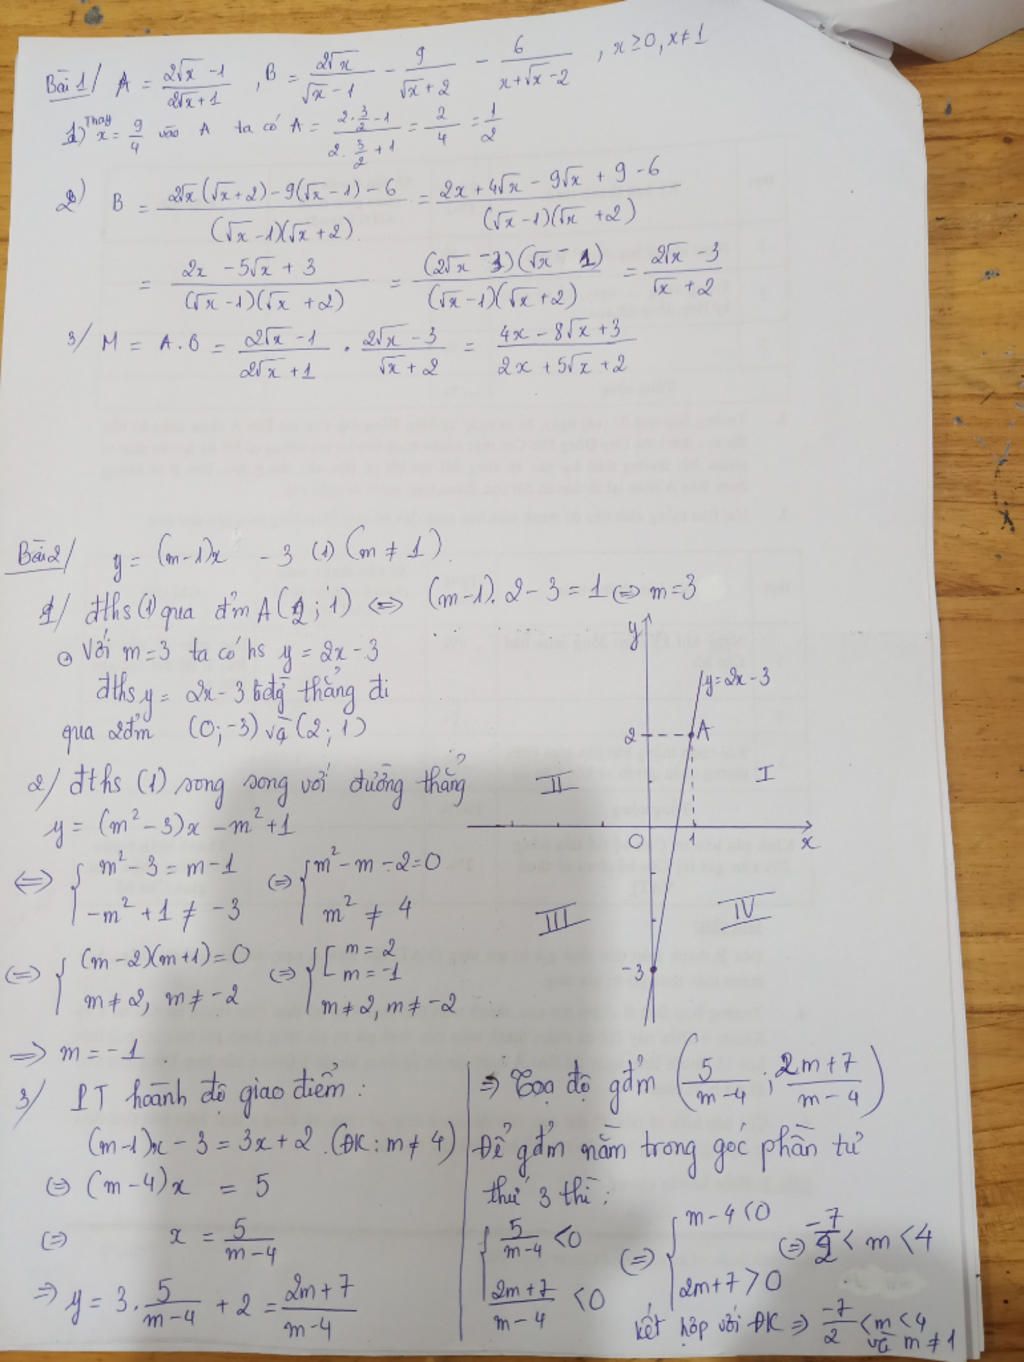 Bài 1/ A = (2√x - 1)/(2√x + 1) , B = 2√x/(√x - 1) - 9/(√x + 2) - 6/(x + √x - 2) , x ≥ 0, x ≠ 1
1) Thay x = 9/4 vào A ta có A = (2·3/2 - 1)/(2·3/2 + 1) = 2/4 = 1/2
2) B = (2√x(√x + 2) - 9(√x - 1) - 6)/((√x - 1)(√x + 2)) = (2x + 4√x - 9√x + 9 - 6)/((√x - 1)(√x + 2))
= (2x - 5√x + 3)/((√x - 1)(√x + 2)) = ((2√x - 3)(√x - 1))/((√x - 1)(√x + 2)) = (2√x - 3)/(√x + 2)
3/ M = A.B = (2√x - 1)/(2√x + 1) · (2√x - 3)/(√x + 2) = (4x - 8√x + 3)/(2x + 5√x + 2)
Bài 2/ y = (m-1)x - 3 (1) (m ≠ 1)
1/ đths (1) qua đ'm A(2; 1) ⇔ (m-1).2 - 3 = 1 ⇔ m = 3
Với m = 3 ta có hs y = 2x - 3
đths y = 2x - 3 là đg thẳng đi
qua 2 đ'm (0; -3) và (2; 1)
y
y = 2x - 3
2
A
II
I
O
1
x
III
IV
-3
2/ đths (1) song song với đường thẳng
y = (m² - 3)x - m² + 1
⇔ { m² - 3 = m - 1 ⇔ { m² - m - 2 = 0
-m² + 1 ≠ -3 m² ≠ 4
⇔ { (m-2)(m+1) = 0 ⇔ { [ m = 2
m = -1
m ≠ 2, m ≠ -2 m ≠ 2, m ≠ -2
⇒ m = -1
3/ PT hoành độ giao điểm :
(m-1)x - 3 = 3x + 2 . (ĐK: m ≠ 4)
⇔ (m-4)x = 5
⇔ x = 5/(m-4)
⇒ y = 3 . 5/(m-4) + 2 = (2m+7)/(m-4)
⇒ Toạ độ gđ'm (5/(m-4) ; (2m+7)/(m-4))
Để gđ'm nằm trong góc phần tư
thứ 3 thì :
{ 5/(m-4) < 0 ⇔ { m-4 < 0 ⇔ -7/2 < m < 4
(2m+7)/(m-4) < 0 2m+7 > 0
kết hợp với ĐK ⇒ -7/2 < m < 4
và m ≠ 1